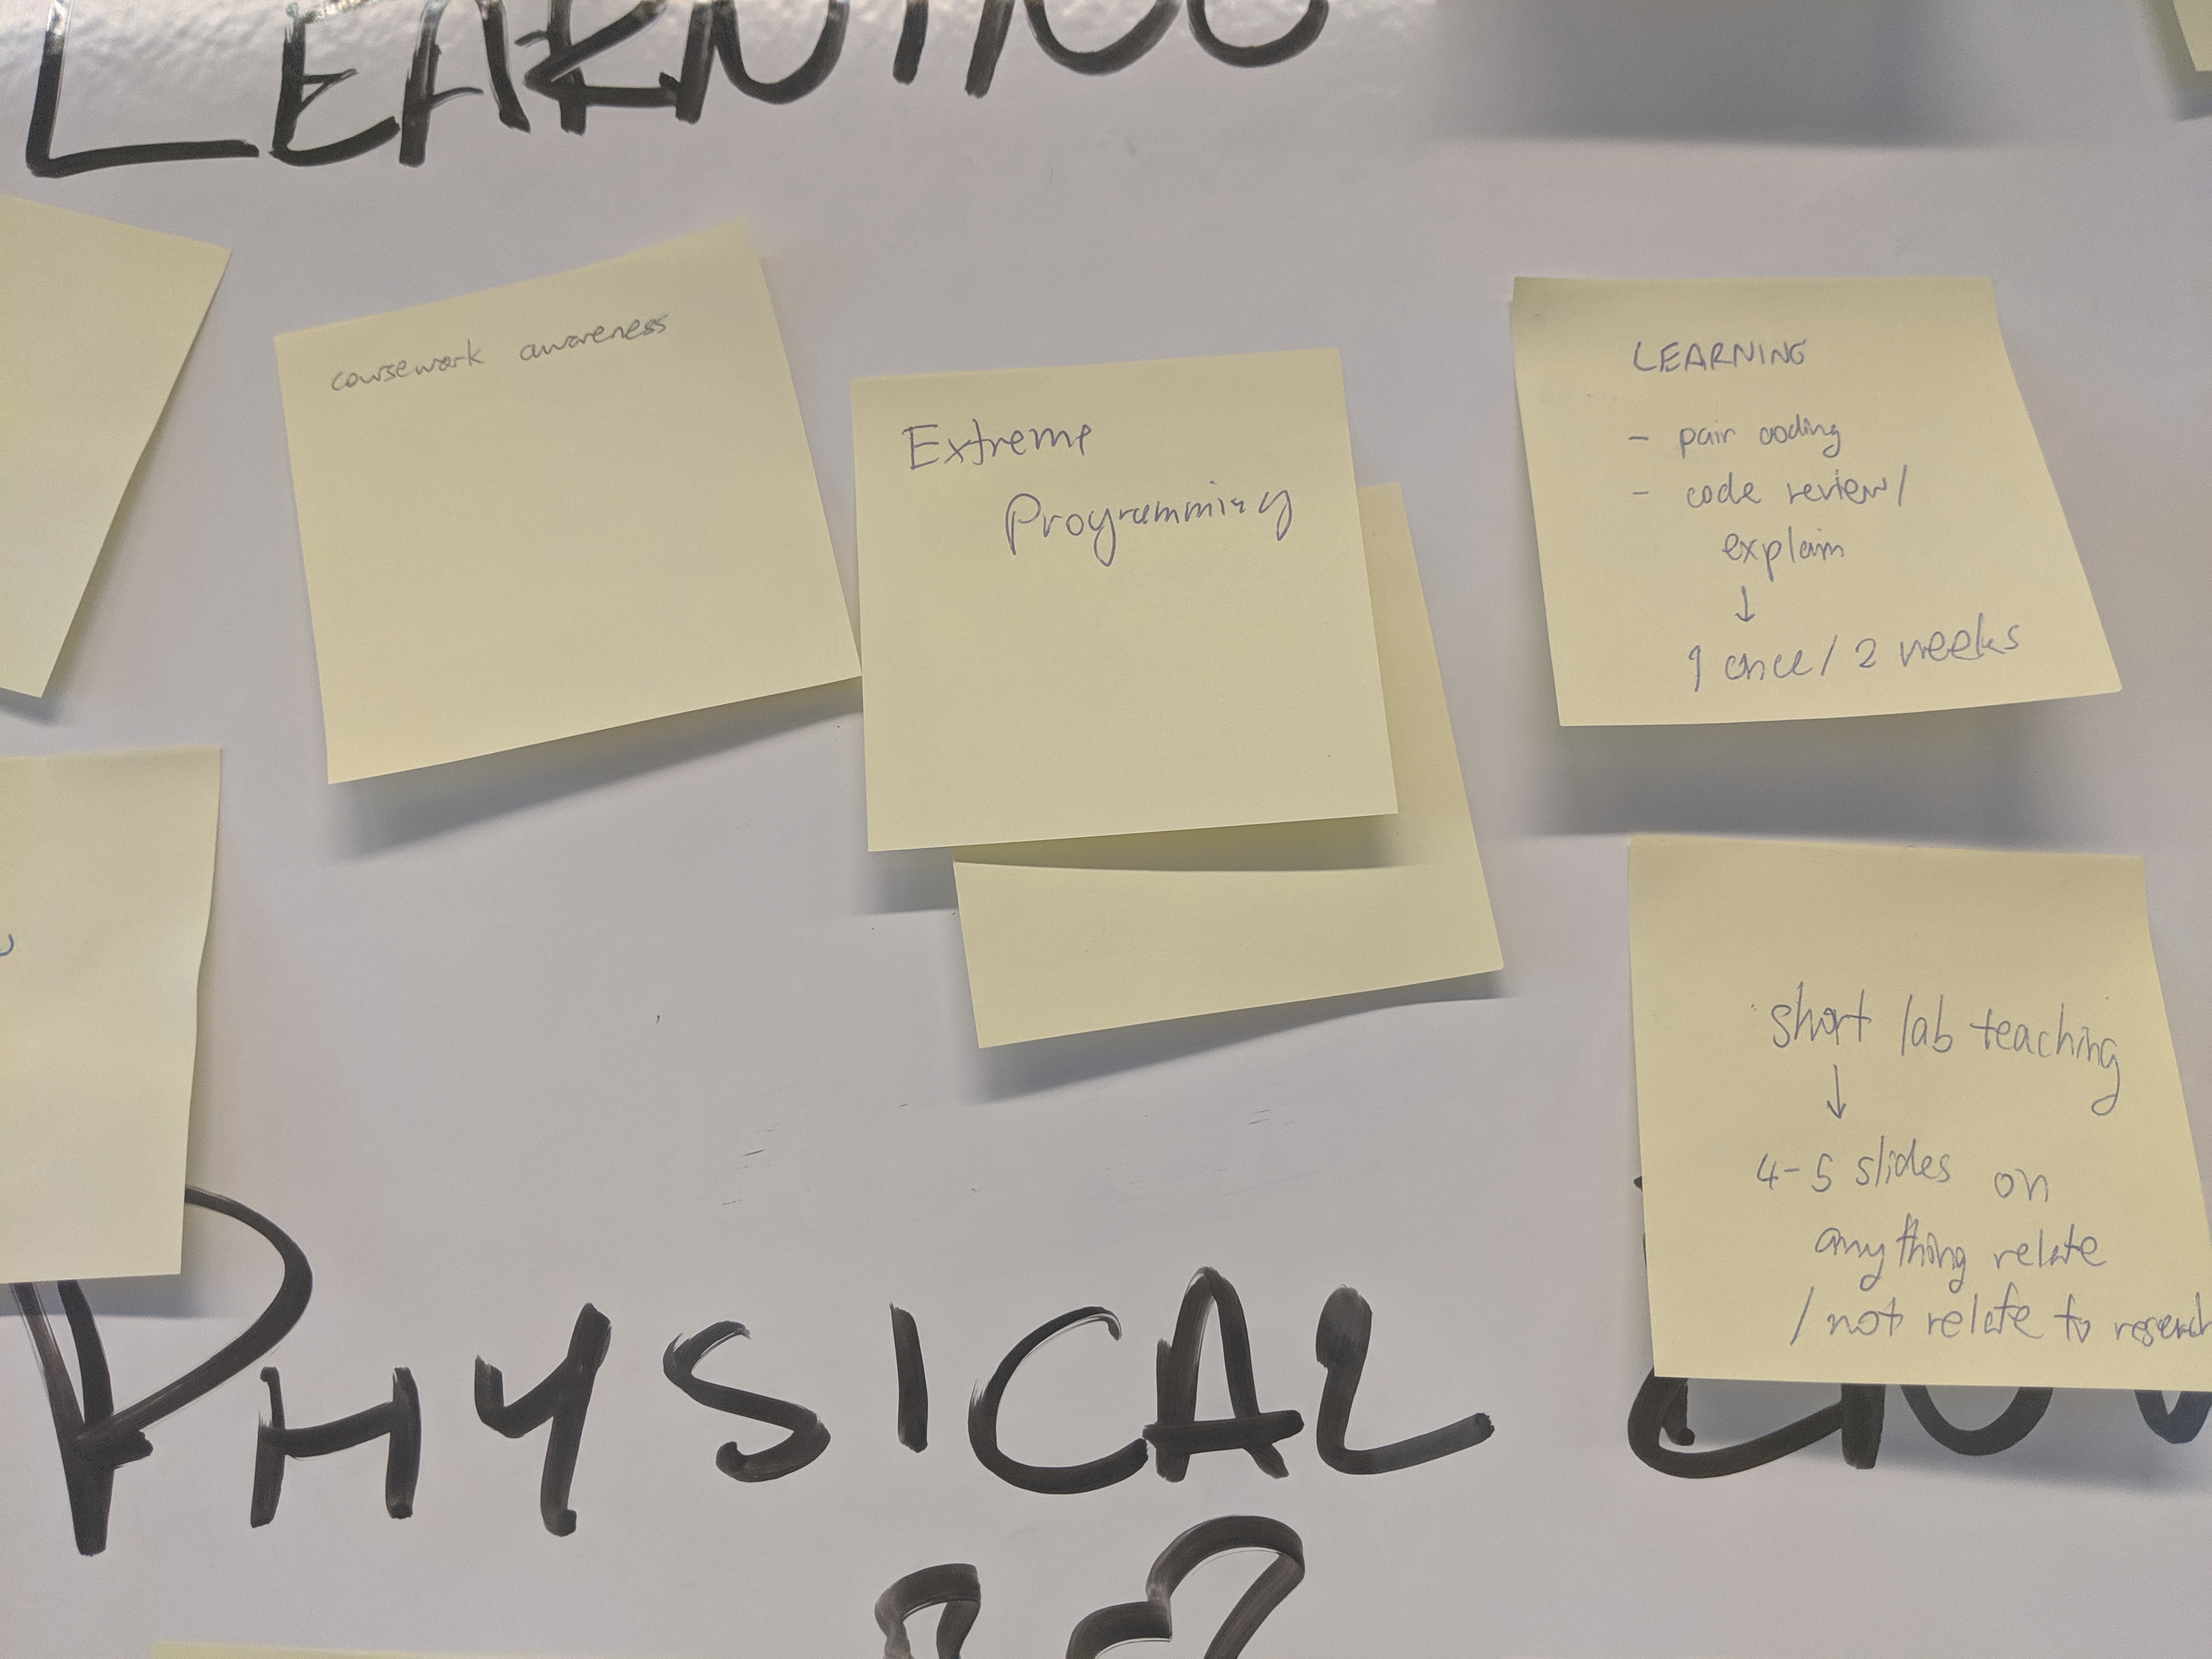 LEARNING
coursework awareness
Extreme
Programming
LEARNING
- pair coding
- code review/
explain
↓
1 once / 2 weeks
short lab teaching
↓
4-5 slides on
anything relate
/ not relate to research
PHYSICAL